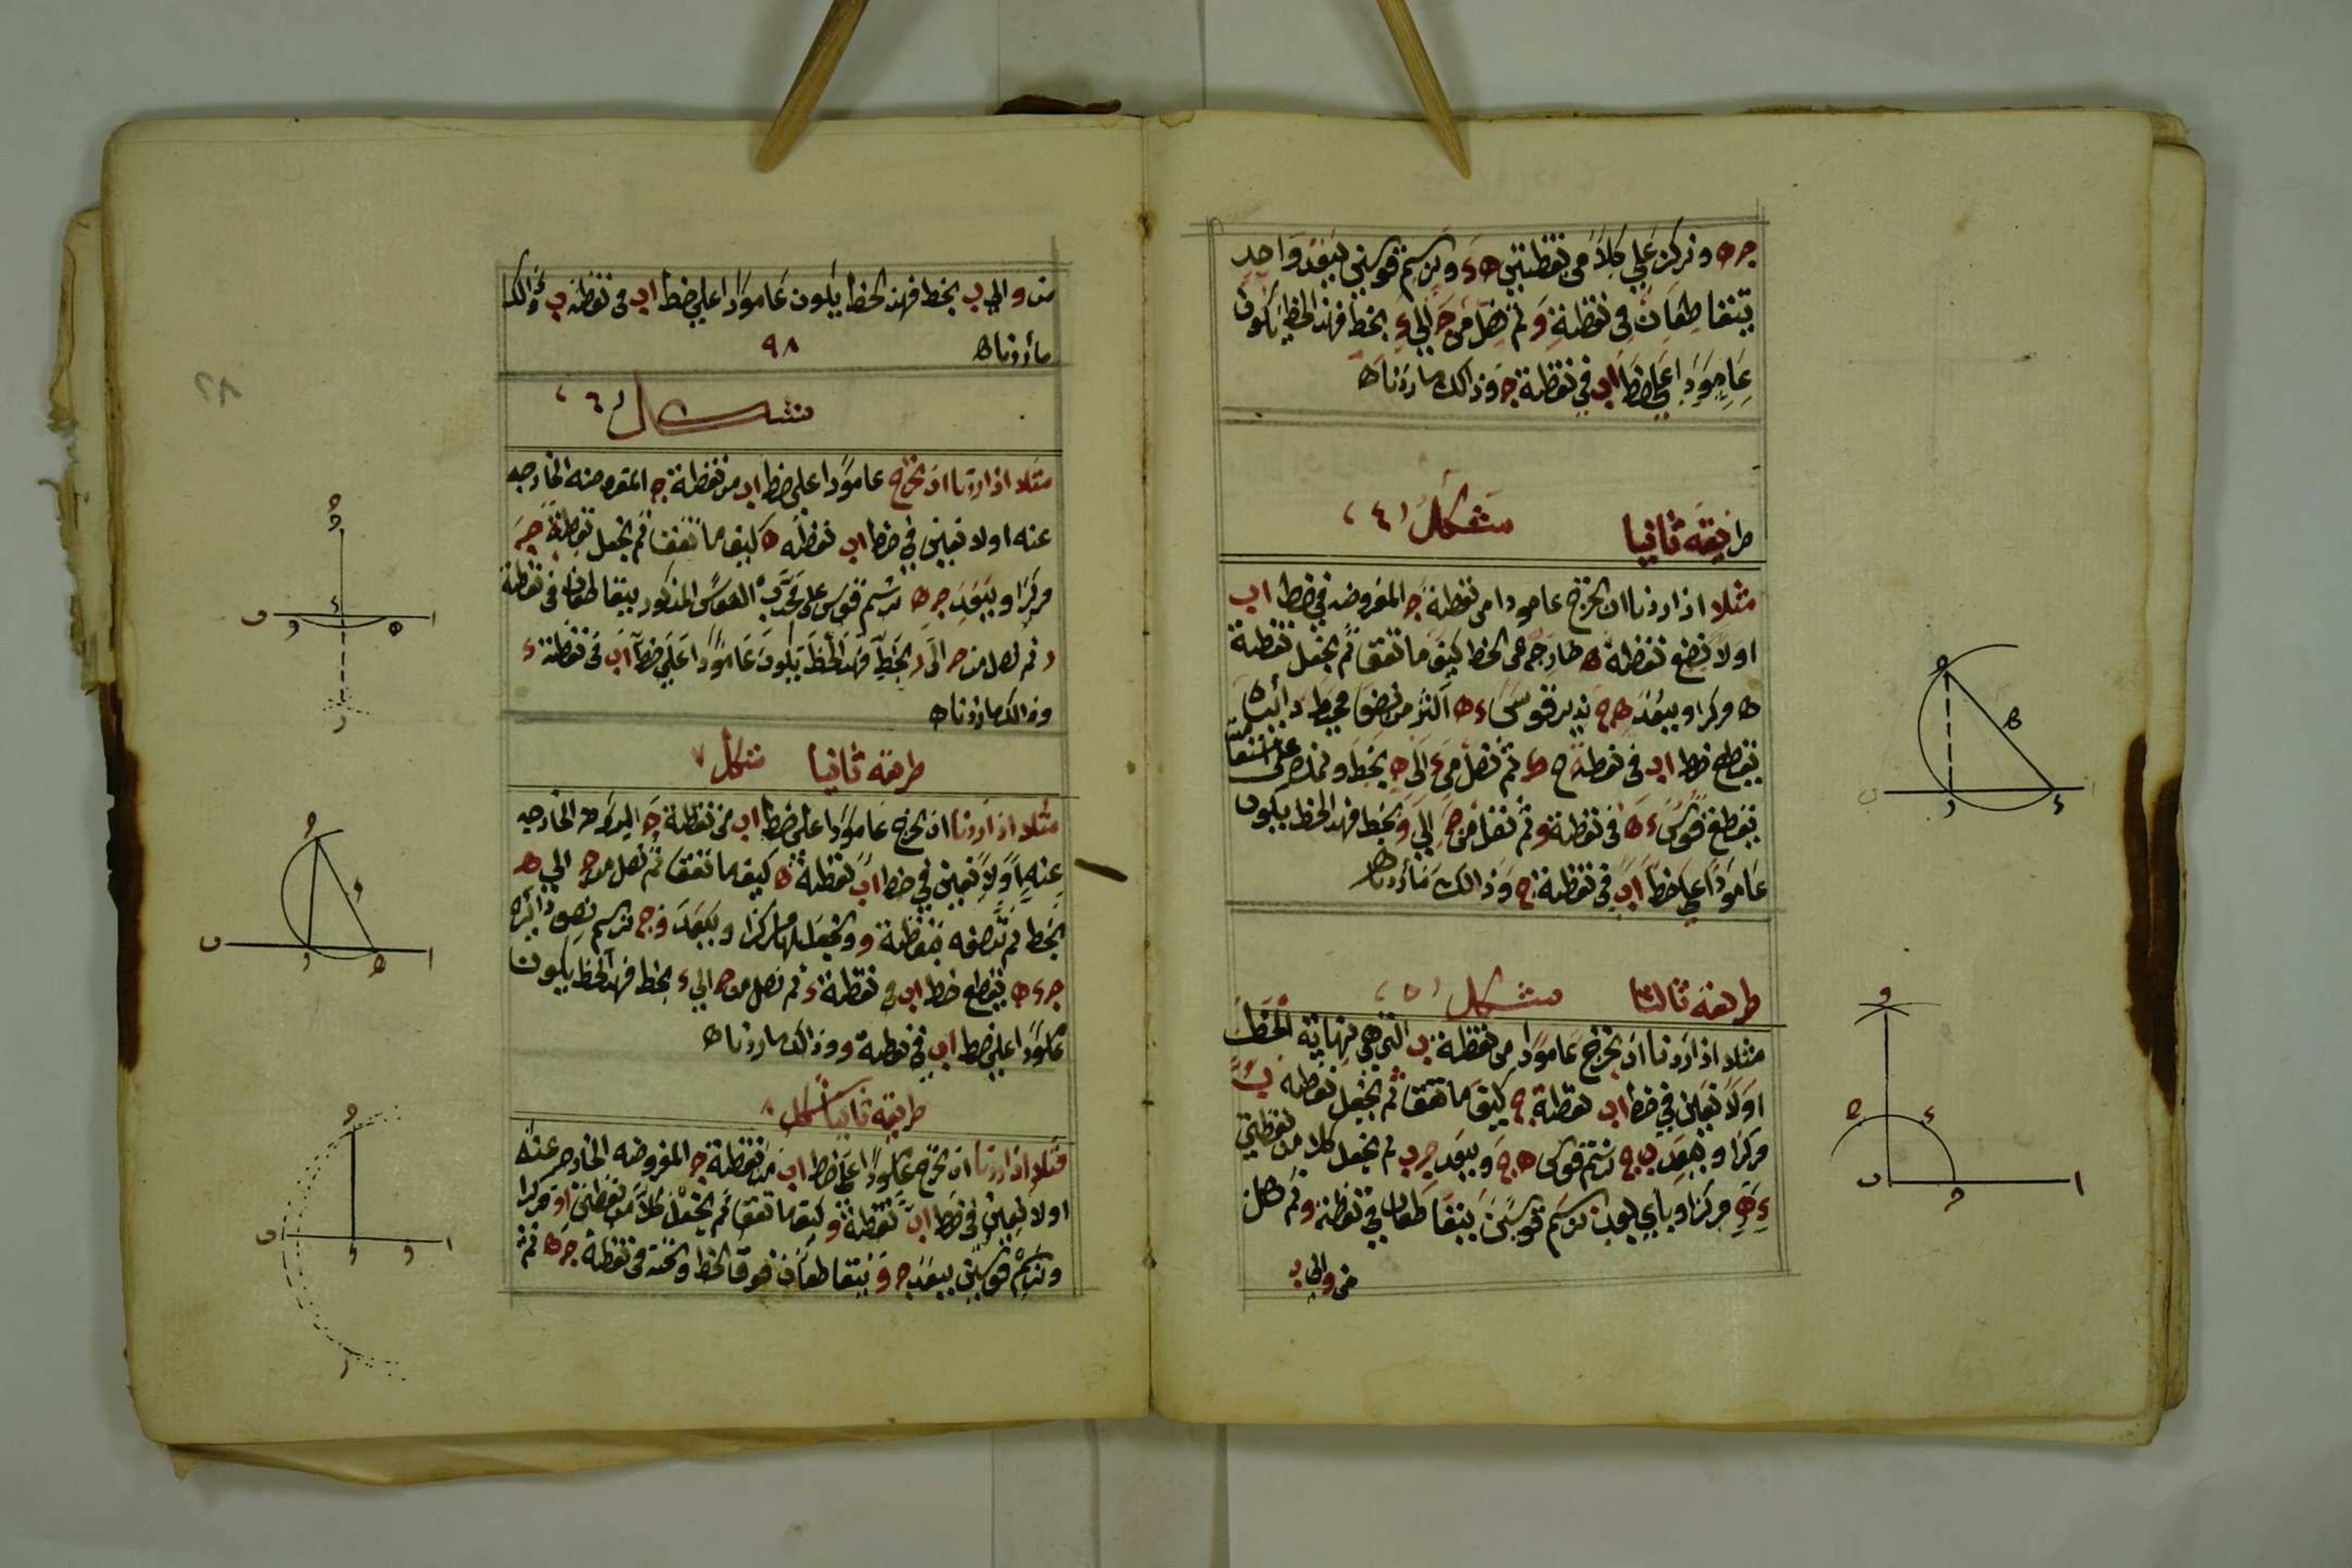 جه ونركز علي كلاً من نقطتين ه ء ونرسم قوسين ببعد واحد
يتقاطعان في نقطة و ثم نصل من ج الي و بخط فهذا الخط يكون
عامودا علي خط اب في نقطة ج وذالك ما اردناه
طريقة ثانيا شكل (٤)
مثلا اذا اردنا ان نخرج عامودا من نقطة ج المفروضه في خط اب
اولا نضع نقطة ه خارجه عن الخط كيف ما تفق ثم نجعل نقطة
ه مركزا وببعد ه ج ندير قوس ء ه اكثر من نصف محيط دائرة
يقطع خط اب في نقطة ج ء ثم نصل من ء الي ه بخط ونمده
يقطع قوس ء ه في نقطة و ثم نصل من ج الي و بخط فهذا الخط يكون
عامودا علي خط اب في نقطة ج وذالك ما اردناه
طريقة ثالثا شكل (٥)
مثلا اذا اردنا ان نخرج عامودا من نقطة ب التي هي نهاية الخط
اولا نعين في خط اب نقطة ج كيف ما تفق ثم نجعل نقطة ب
مركزا وببعد ب ج نرسم قوس ه ج وببعد ج ب ثم نجعل كلا من نقطتين
ء ه مركزا وباي بعد نرسم قوسين يتقاطعان في نقطة و ثم نصل
من و الي ب
من و الي ب بخط فهذا الخط يكون عامودا علي خط اب في نقطة ب وذالك
ما اردناه ٩٨
شكل (٦)
مثلا اذا اردنا ان نخرج عامودا علي خط اب من نقطة ج المفروضه الخارجه
عنه اولا نعين في خط اب نقطة ه كيف ما تفق ثم نجعل نقطة ج
مركزا وببعد ج ه نرسم قوس القوس المذكور يتقاطعان في نقطة
ر ثم نصل من ج الي ر بخط فهذا الخط يكون عامودا علي خط اب في نقطة ء
وذالك ما اردناه
طريقة ثانيا شكل ٧
مثلا اذا اردنا ان نخرج عامودا علي خط اب من نقطة ج الخارجه
عنه اولا نعين في خط اب نقطة ه كيف ما تفق ثم نصل من ج الي ه
بخط ثم ننصفه بنقطة و ونجعلها مركزا وببعد و ج نرسم نصف دائرة
ج ء ه يقطع خط اب في نقطة ء ثم نصل من ج الي ء بخط فهذا الخط يكون
عامودا علي خط اب في نقطة و وذالك ما اردناه
طريقة ثانيا شكل ٨
مثلا اذا اردنا ان نخرج عامودا علي خط اب من نقطة ج المفروضه الخارجه عنه
اولا نعين في خط اب نقطة و كيف ما تفق ثم نجعل كلا من نقطتين او مركزا
ونرسم قوسين ببعد ج و يتقاطعان فوق الخط وتحته في نقطة ج ه ثم